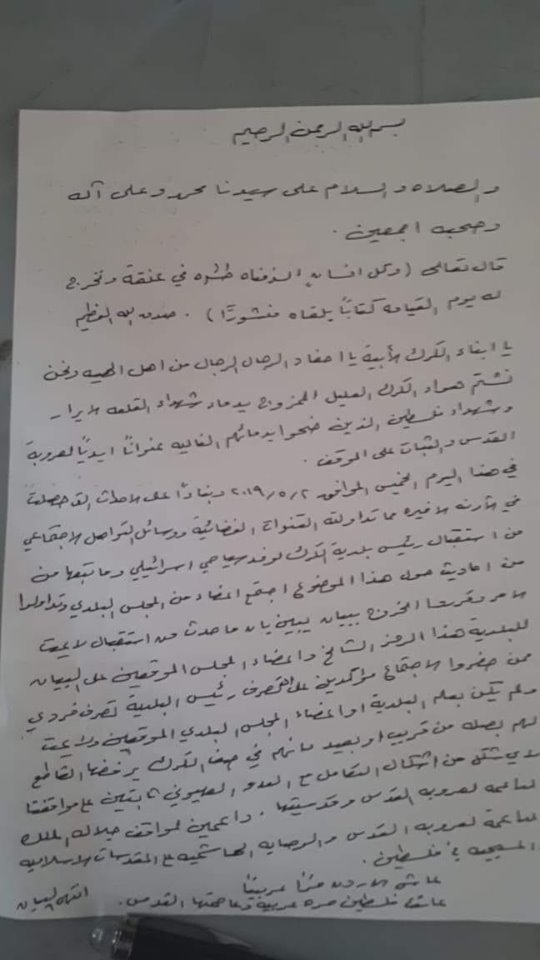 بسم الله الرحمن الرحيم
والصلاه والسلام على سيدنا محمد وعلى آله
وصحبه اجمعين .
قال تعالى (وكل انسان الزمناه طئره في عنقة ونخرج
له يوم القيامه كتاباً يلقاه منشورًا) . صدق الله العظيم
يا ابناء الكرك الأبية يا احفاد الرجال الرجال من اهل الهيه ونحن
نشتم هواء الكرك العليل الممزوج بدماء شهداء القلعه الابرار
وشهداء فلسطين الذين ضحوا بدمائهم الغاليه عنواناً ابدياً لعروبة
القدس والثبات على الموقف .
في هذا اليوم الخميس الموافق ٢٠١٩/٥/٢ وبناءاً على الاحداث التي حصلت
في الآونه الاخيره مما تداولته القنوات الفضائية ووسائل التواصل الاجتماعي
من استقبال رئيس بلدية الكرك لوفد سياحي اسرائيلي وما تبعها من
من احاديث حول هذا الموضوع اجتمع اعضاء من المجلس البلدي وتداولوا
الامر وقرروا الخروج ببيان يبين بان ما حدث من استقبال لا يمت
للبلدية هذا الرمز الشامخ واعضاء المجلس الموقعين على البيان
ممن حضروا الاجتماع مؤكدين على ان تصرف رئيس البلدية تصرف فردي
ولم يكن بعلم البلدية او اعضاء المجلس البلدي الموقعين ولا يمت
لهم بصله من قريب او بعيد مانهم في صف الكرك برفضها القاطع
لاي شكل من اشكال التعامل مع العدو الصهيوني ثابتين على مواقفنا
الداعمه لعروبه القدس وقدسيتها . داعمين لمواقف جلاله الملك
الداعمة لعروبه القدس والوصايه الهاشميه على المقدسات الاسلاميه
المسيحيه في فلسطين .
عاش الاردن حراً عربياً
عاشت فلسطين حره عربية وعاصمتها القدس . انتهى البيان